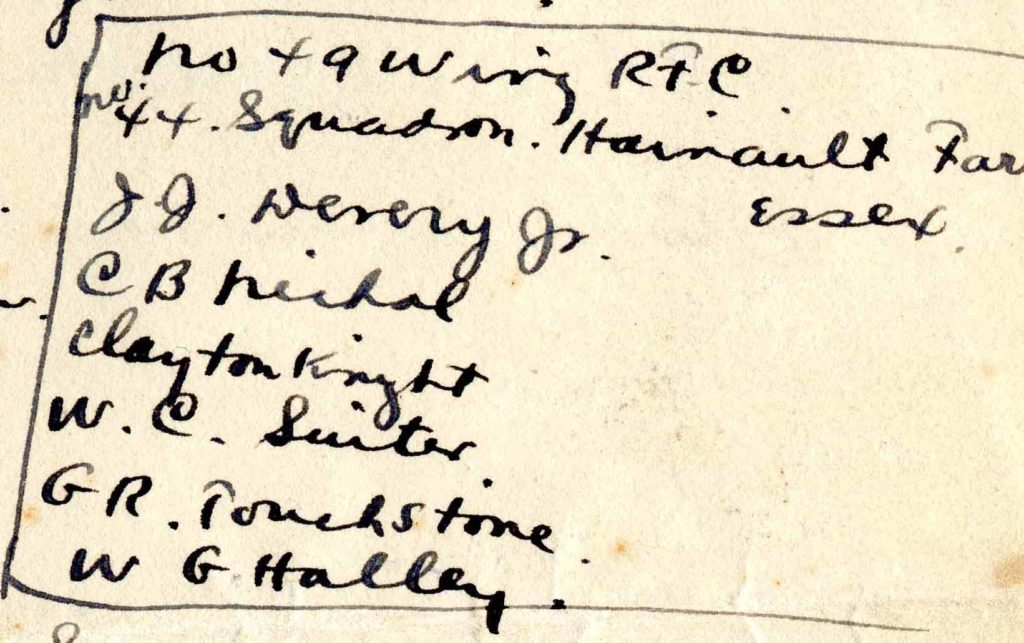 No 49 Wing RFC.
No. 44. Squadron. Hainault Far
Essex.
J J. Devery Jr.
C B Nichol
Clayton Knight
W. C. Suiter.
G R. Touchstone.
W G Halley.